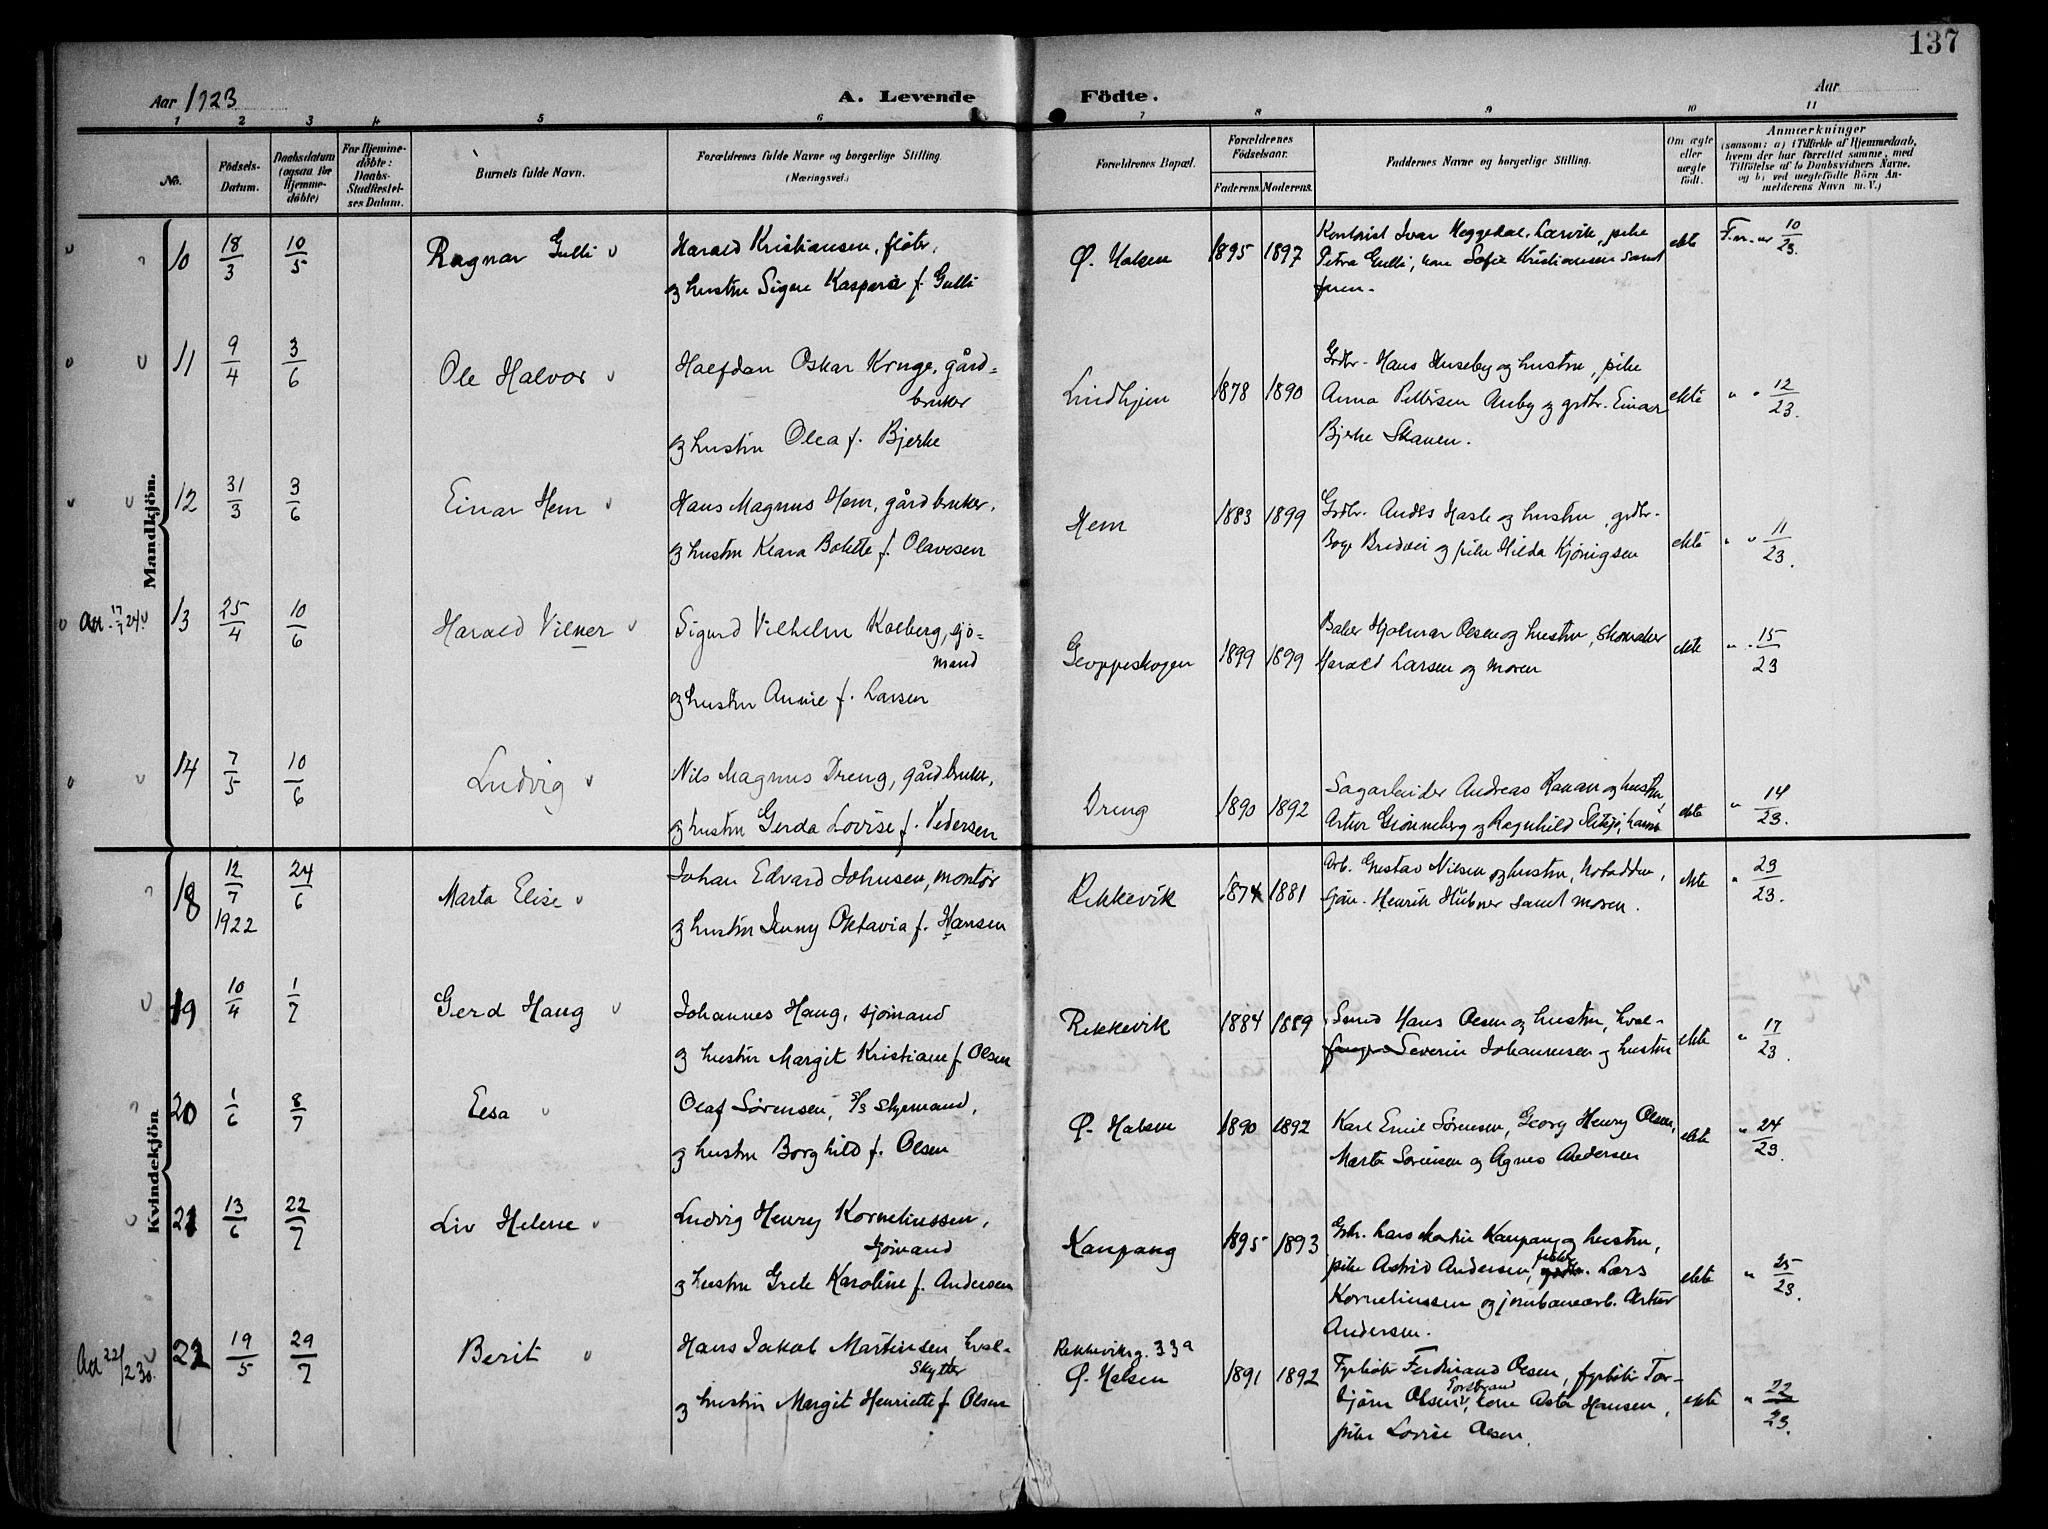 137
Aar 1923
A. Levende Födte.
Aar
1 2 3 4 5 6 7 8 9 10 11
No.
Födsels-Datum.
Daabsdatum (ogsaa for Hjemmedöbte)
For Hjemmedöbte: Daabs-Stadfæstelses Datum.
Barnets fulde Navn.
Forældrenes fulde Navne og borgerlige Stilling.
(Næringsvei.)
Forældrenes Bopæl.
Forældrenes Födselsaar.
Faderens. Moderens.
Faddernes Navne og borgerlige Stilling.
Om ægte eller uægte födt.
Anmærkninger
(saasom: a) i Tilfælde af Hjemmedaab, hvem der har forrettet samme, med Tilföielse af to Daabsvidners Navne, og b) ved uægtefödte Börn Anmelderens Navn m. V.)
Mandkjön.
10 18/3 10/5 Ragnar Gulli Harald Kristiansen, fløtr.
og hustru Signe Kaspara f. Gulli
Ø. Halsen 1895 1897
Kontorist Ivar Heggedal, Larvik, pike
Petra Gulli, kone Sofie Kristiansen samt
faren.
ekte F.m. nr 10/23.
11 9/4 3/6 Ole Halvor Halfdan Oskar Kruge, gård=
bruker
og hustru Olea f. Bjerke
Lindhjem 1878 1890
Grdbr. Hans Huseby og hustru, pike
Anna Pettersen Auby og grdbr. Einar
Bjerke Skauen.
ekte " " 12/23.
12 31/3 3/6 Einar Hem Hans Magnus Hem, gårdbruker,
og hustru Klara Bolette f. Olavesen
Hem 1883 1899
Grdbr. Anders Hasle og hustru, grdbr.
Boye Bredvei og pike Hilda Kjønigsen
ekte " " 11/23.
13 25/4 10/6 Harald Vilner Sigurd Vilhelm Kolberg, sjø=
mand
og hustru Annie f. Larsen
Geoppeskogen 1899 1899
Baker Hjalmar Olsen og hustru, skomaker
Harald Larsen og moren
ekte " " 15/23
14 7/5 10/6 Ludvig Nils Magnus Dreng, gårdbruker,
og hustru Gerda Lovise f. Pedersen
Dreng 1890 1892
Sagarbeider Andreas Ranan og hustru,
Artur Grønneberg og Ragnhild
ekte " 14/23.
Kvindekjön
18 12/7 1922 24/6 Marta Elise Johan Edvard Johnsen, montør
og hustru Jenny Oktavia f. Hansen
Rekkevik 1874 1881
Arb. Gustav Nilsen og hustru, Notodden,
Henrik Hübner samt moren.
ekte " 23/23.
19 10/4 1/7 Gerd Haug Johannes Haug, sjømand
og hustru Margit Kristiane f. Olsen
Rekkevik 1884 1889
Smed Hans Olsen og hustru, hval-
fanger Severin Johannesen og hustru
ekte " 17/23.
20 1/6 8/7 Elsa Olaf Sørensen, s/s styrmand,
og hustru Borghild f. Olsen
Ø. Halsen 1890 1892
Karl Emil Sørensen, Georg Henry Olsen,
Marta Sørensen og Agnes Andersen
ekte " 24/23.
21 13/6 22/7 Liv Helene Ludvig Henry Korneliussen,
sjømand
og hustru Grete Karoline f. Andersen
Kaupang 1895 1893
Grbr. Lars Martin Kaupang og hustru,
pike Astrid Andersen, fisker Lars
Korneliussen og jernbanearb. Artur
Andersen.
ekte " 25/23.
22 19/5 29/7 Berit Hans Jakob Martinsen hval-
skytter
og hustru Margit Henriette f. Olsen
Rekkeviksg. 33a
Ø. Halsen 1891 1892
Fyrbøter Ferdinand Olsen, fyrbøter Tor-
bjørn Olsen, Torstrand kone Asta Hansen,
pike Lovise Olsen.
ekte " 22/23.